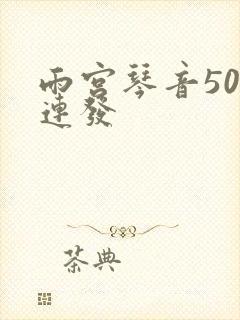 雨宫琴音50
連發
茶典